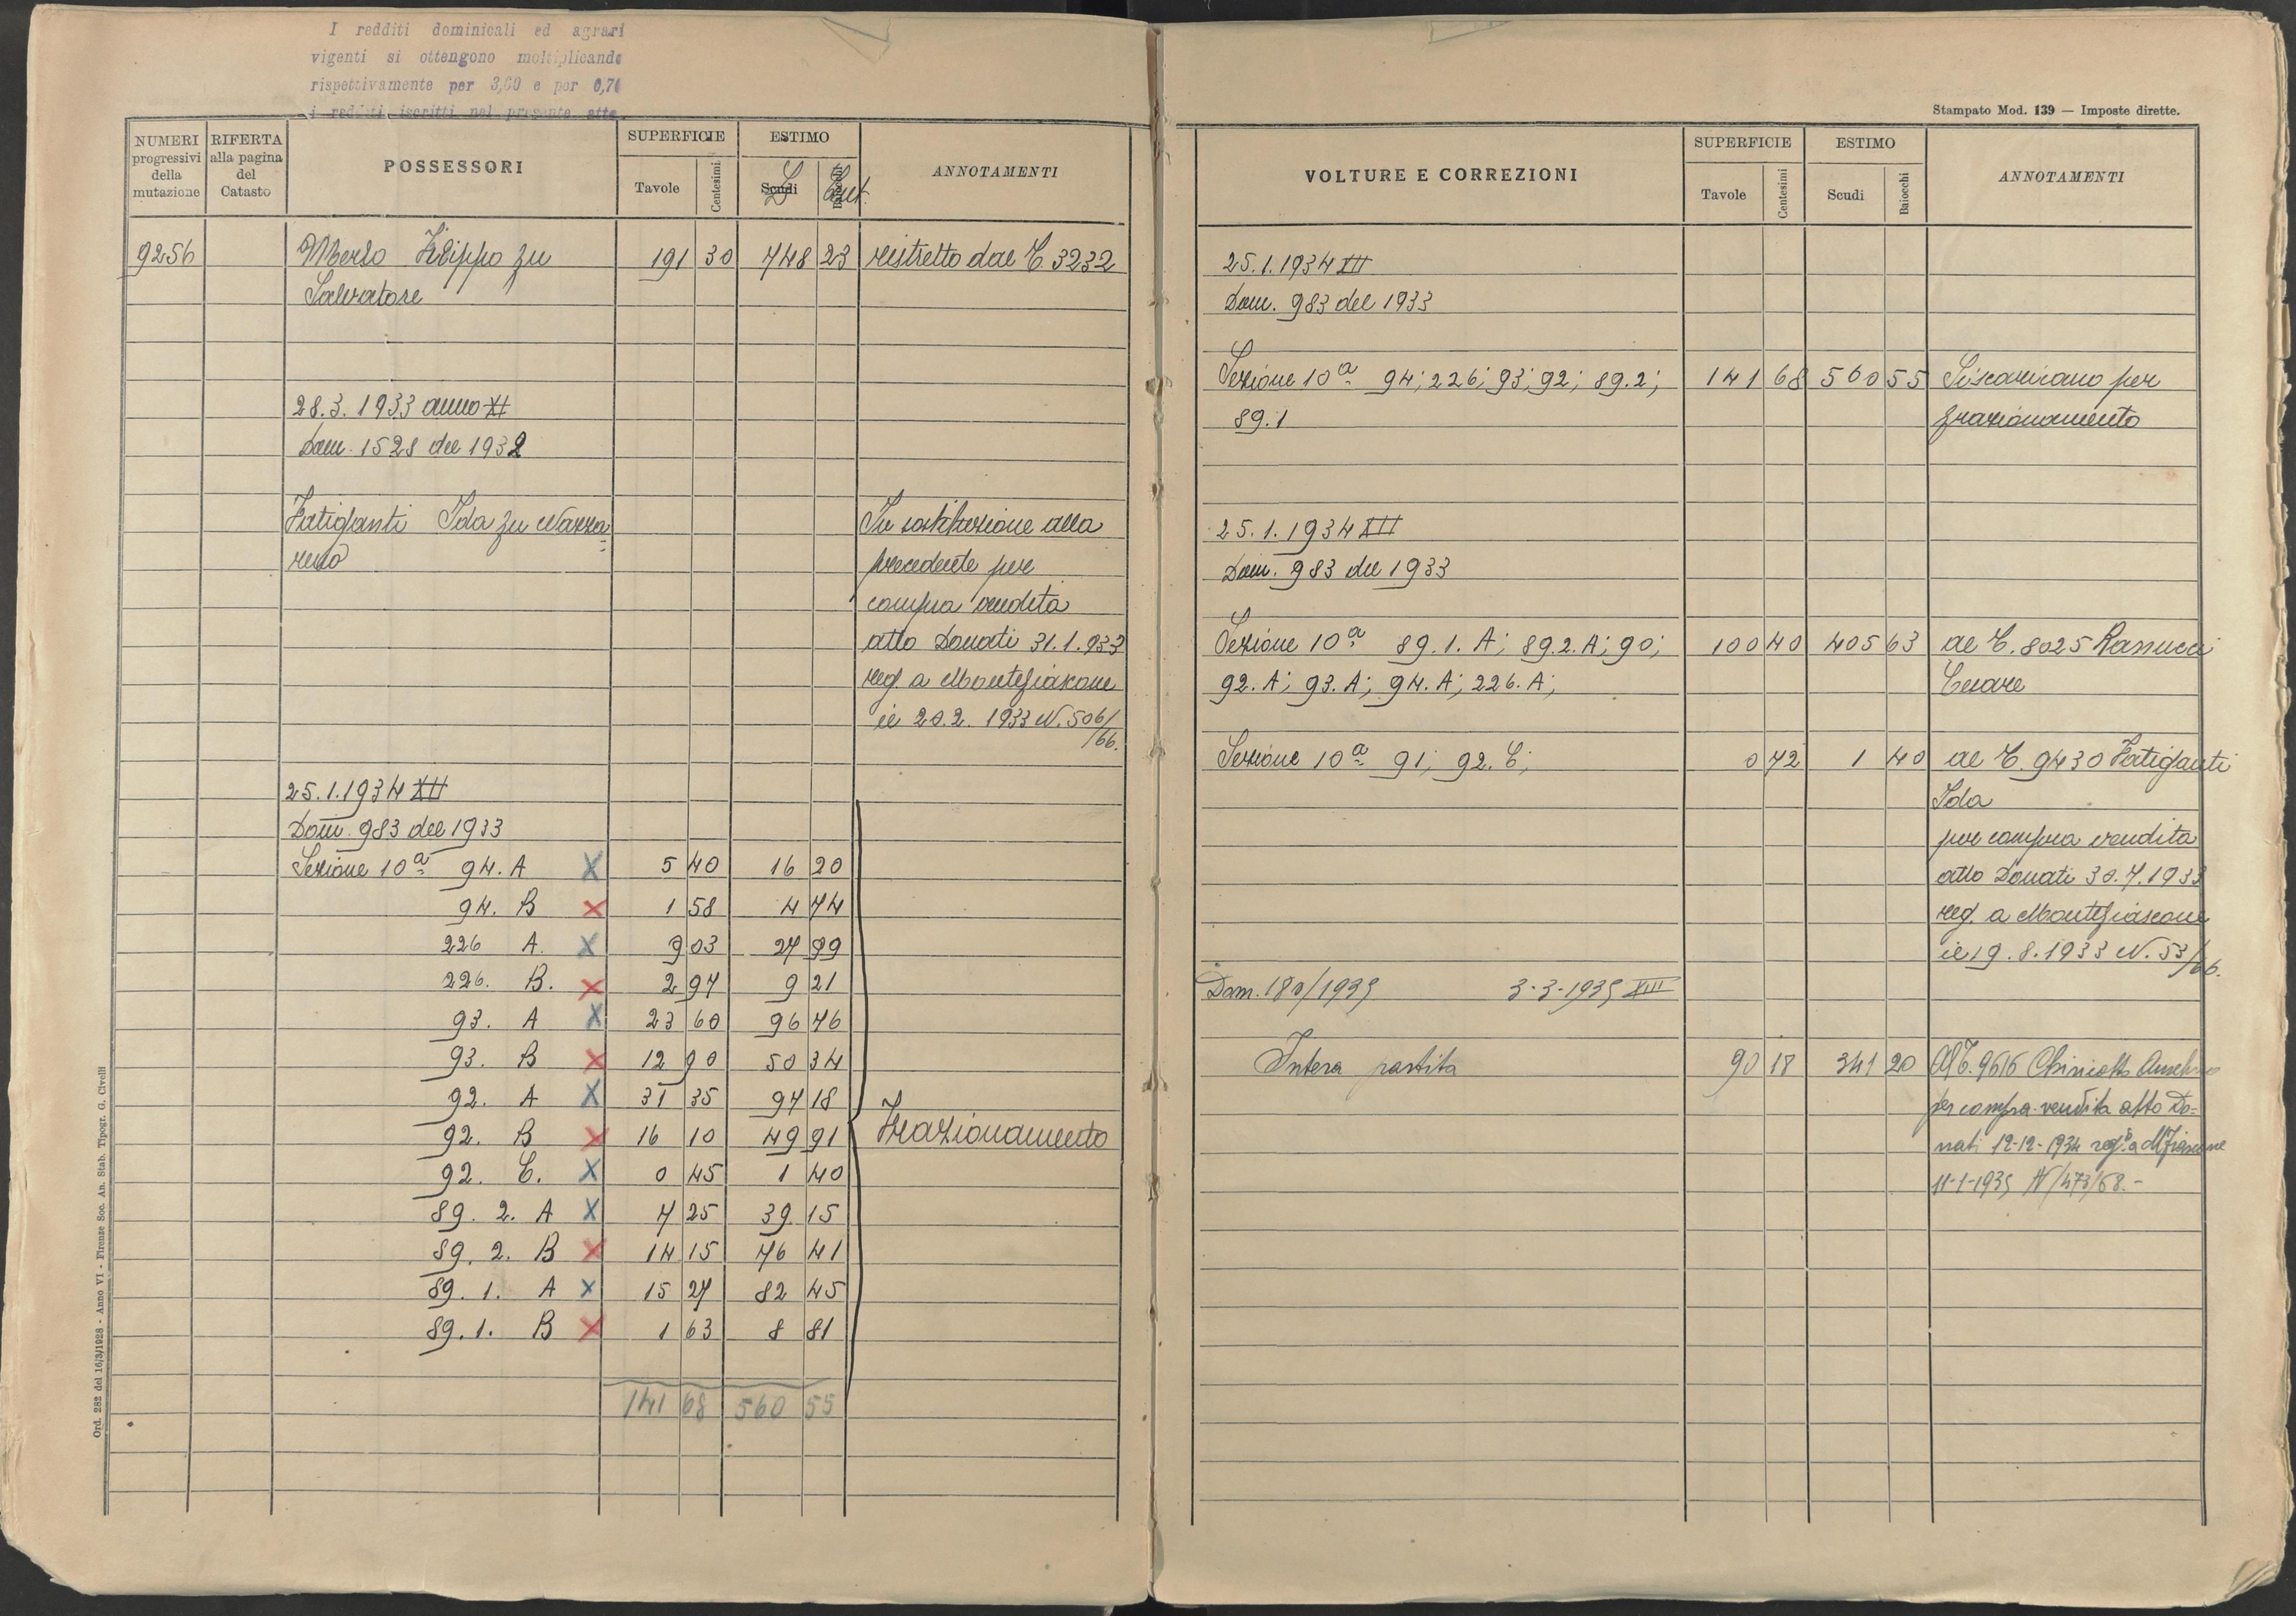 I redditi dominicali ed agrari
vigenti si ottengono moltiplicando
rispettivamente per 3,60 e per 0,70
i redditi iscritti nel presente atto.
NUMERI progressivi della mutazione
RIFERTA alla pagina del Catasto
POSSESSORI
SUPERFICIE
Tavole Centesimi
ESTIMO
Scudi Baiocchi
L Cent.
ANNOTAMENTI
9256 Merlo Filippo fu 191 30 748 23 ristretto dal C. 3232
Salvatore
28.3.1933 anno XI
Dom. 1528 del 1932
Fatiganti Ida fu Nazza= In sostituzione alla
reno precedente per
compra vendita
atto Donati 31.1.933
reg. a Montefiascone
il 20.2.1933 N. 506/
/66.
25.1.1934 XII
Dom. 983 del 1933
Sezione 10ª 94. A X 5 40 16 20
94. B X 1 58 4 74
226 A. X 9 03 27 99
226. B. X 2 97 9 21
93. A X 23 60 96 76
93. B X 12 90 50 34
92. A X 31 35 97 18
92. B X 16 10 49 91 Frazionamento
92. C. X 0 45 1 40
89. 2. A X 7 25 39 15
89. 2. B X 14 15 76 41
89. 1. A X 15 27 82 45
89. 1. B X 1 63 8 81
141 68 560 55
Ord. 282 del 16/3/1928 - Anno VI - Firenze Soc. An. Stab. Tipogr. G. Civelli
Stampato Mod. 139 — Imposte dirette.
VOLTURE E CORREZIONI
SUPERFICIE
Tavole Centesimi
ESTIMO
Scudi Baiocchi
ANNOTAMENTI
25.1.1934 XII
Dom. 983 del 1933
Sezione 10ª 94; 226; 93; 92; 89.2; 141 68 560 55 Si scaricano per
89.1 frazionamento
25.1.1934 XII
Dom. 983 del 1933
Sezione 10ª 89.1. A; 89.2. A; 90; 100 40 405 63 al C. 8025 Ranucci
92. A; 93. A; 94. A; 226. A; Cesare
Sezione 10ª 91; 92. C; 0 72 1 40 al C. 9430 Fatiganti
Ida
per compra vendita
atto Donati 30.7.1933
reg. a Montefiascone
il 19.8.1933 N. 53/
/66.
Dom. 180/1935 3-3-1935 XIII
Intera partita 90 18 341 20 Al C. 9616 Anselmo
per compra-vendita atto Do=
nati 12-12-1934 reg.º a M.Fiascone
11-1-1935 N/473/68.-